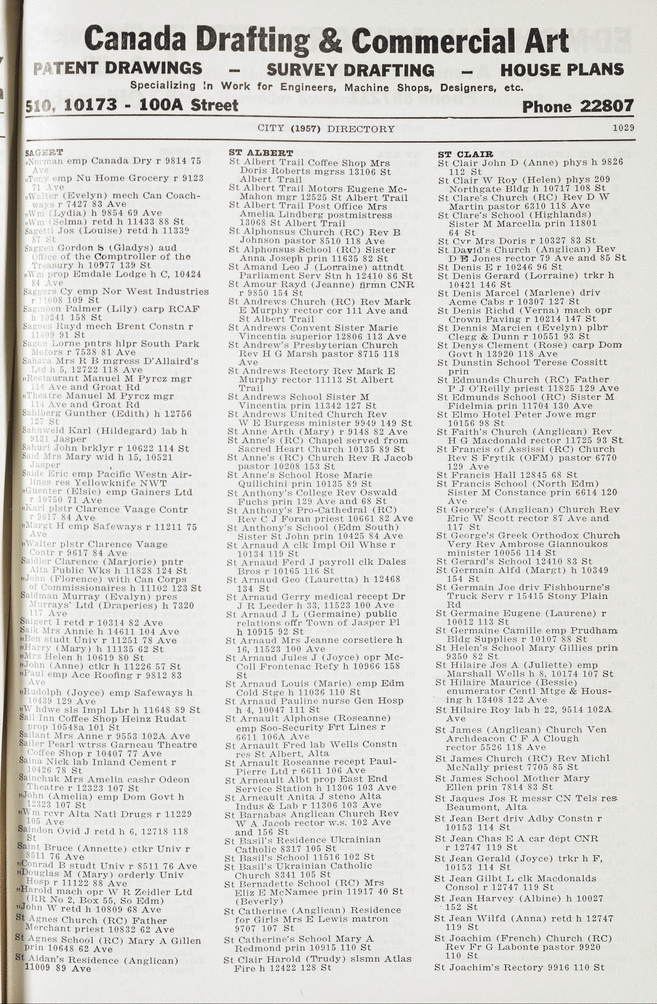 Canada Drafting & Commercial Art
PATENT DRAWINGS — SURVEY DRAFTING — HOUSE PLANS
Specializing in Work for Engineers, Machine Shops, Designers, etc.
510, 10173 - 100A Street Phone 22807
CITY (1957) DIRECTORY 1029
SAGERT
"Norman emp Canada Dry r 9814 75
Ave
"Tony emp Nu Home Grocery r 9123
71 Ave
"Walter (Evelyn) mech Can Coach-
ways r 7427 83 Ave
"Wm (Lydia) h 9854 69 Ave
"Wm (Selma) retd h 11433 88 St
Sagetti Jos (Louise) retd h 11339
87 St
Sargen Gordon S (Gladys) aud
Office of the Comptroller of the
Treasury h 10977 139 St
"Wm prop Emdale Lodge h C, 10424
84 Ave
Cy emp Nor West Industries
r 11008 109 St
Palmer (Lily) carp RCAF
h 10241 158 St
Rayd mech Brent Constn r
11009 91 St
Lorne pntrs hlpr South Park
Motors r 7538 81 Ave
Sahara Mrs R B mgress D'Allaird's
Ltd h 5, 12722 118 Ave
"Restaurant Manuel M Pyrcz mgr
114 Ave and Groat Rd
"Theatre Manuel M Pyrcz mgr
114 Ave and Groat Rd
Sahlberg Gunther (Edith) h 12756
127 St
Sahnweld Karl (Hildegard) lab h
9121 Jasper
Sahuri John brklyr r 10622 114 St
Said Mrs Mary wid h 15, 10521
Jasper
Saide Eric emp Pacific Westn Air-
lines res Yellowknife NWT
"Guenter (Elsie) emp Gainers Ltd
r 10750 71 Ave
"Karl plstr Clarence Vaage Contr
r 9617 84 Ave
"Margt H emp Safeways r 11211 75
Ave
"Walter plstr Clarence Vaage
Contr r 9617 84 Ave
Saidler Clarence (Marjorie) pntr
Alta Public Wks h 11828 124 St
"John (Florence) with Can Corps
of Commissionaires h 11102 123 St
Saidman Murray (Evalyn) pres
Murrays' Ltd (Draperies) h 7320
117 Ave
Saigert I retd r 10314 82 Ave
Saik Mrs Annie h 14611 104 Ave
"Ben studt Univ r 11251 78 Ave
"Harry (Mary) h 11135 62 St
"Mrs Helen h 10619 80 St
"John (Anne) ctkr h 11226 57 St
"Paul emp Ace Roofing r 9812 83
Ave
"Rudolph (Joyce) emp Safeways h
10439 129 Ave
"W hdwe sls Impl Lbr h 11648 89 St
Sail Inn Coffee Shop Heinz Rudat
prop 10548a 101 St
Sailant Mrs Anne r 9553 102A Ave
Sailer Pearl wtrss Garneau Theatre
Coffee Shop r 10407 77 Ave
Saina Nick lab Inland Cement r
10426 78 St
Sainchuk Mrs Amelia cashr Odeon
Theatre r 12323 107 St
"John (Amelia) emp Dom Govt h
12323 107 St
"Wm rcvr Alta Natl Drugs r 11229
105 Ave
Saindon Ovid J retd h 6, 12718 118
St
Saint Bruce (Annette) ctkr Univ r
8511 76 Ave
"Conrad B studt Univ r 8511 76 Ave
"Douglas M (Mary) orderly Univ
Hosp r 11122 88 Ave
"Harold mach opr W R Zeidler Ltd
(RR No 2, Box 55, So Edm)
"John W retd h 10809 68 Ave
St Agnes Church (RC) Father
Merchant priest 10832 62 Ave
St Agnes School (RC) Mary A Gillen
prin 10648 62 Ave
St Aidan's Residence (Anglican)
11009 89 Ave
ST ALBERT
St Albert Trail Coffee Shop Mrs
Doris Roberts mgrss 13106 St
Albert Trail
St Albert Trail Motors Eugene Mc-
Mahon mgr 12525 St Albert Trail
St Albert Trail Post Office Mrs
Amelia Lindberg postmistress
13068 St Albert Trail
St Alphonsus Church (RC) Rev B
Johnson pastor 8510 118 Ave
St Alphonsus School (RC) Sister
Anna Joseph prin 11635 82 St
St Amand Leo J (Lorraine) attndt
Parliament Serv Stn h 12410 86 St
St Amour Rayd (Jeanne) firmn CNR
r 9850 154 St
St Andrews Church (RC) Rev Mark
E Murphy rector cor 111 Ave and
St Albert Trail
St Andrews Convent Sister Marie
Vincentia superior 12806 113 Ave
St Andrew's Presbyterian Church
Rev H G Marsh pastor 8715 118
Ave
St Andrews Rectory Rev Mark E
Murphy rector 11113 St Albert
Trail
St Andrews School Sister M
Vincentia prin 11342 127 St
St Andrews United Church Rev
W E Burgess minister 9949 149 St
St Anne Arth (Mary) r 9148 82 Ave
St Anne's (RC) Chapel served from
Sacred Heart Church 10135 89 St
St Anne's (RC) Church Rev R Jacob
pastor 10208 153 St
St Anne's School Rose Marie
Quilichini prin 10135 89 St
St Anthony's College Rev Oswald
Fuchs prin 129 Ave and 68 St
St Anthony's Pro-Cathedral (RC)
Rev C J Foran priest 10661 82 Ave
St Anthony's School (Edm South)
Sister St John prin 10425 84 Ave
St Arnaud A clk Impl Oil Whse r
10134 119 St
St Arnaud Ferd J payroll clk Dales
Bros r 10165 116 St
St Arnaud Geo (Lauretta) h 12468
134 St
St Arnaud Gerry medical recept Dr
J R Leeder h 33, 11523 100 Ave
St Arnaud J L (Germaine) public
relations offr Town of Jasper Pl
h 10915 92 St
St Arnaud Mrs Jeanne corsetiere h
16, 11523 100 Ave
St Arnaud Jules J (Joyce) opr Mc-
Coll Frontenac Refy h 10966 158
St
St Arnaud Louis (Marie) emp Edm
Cold Stge h 11036 110 St
St Arnaud Pauline nurse Gen Hosp
h 4, 10047 111 St
St Arnault Alphonse (Roseanne)
emp Soo-Security Frt Lines r
6611 106A Ave
St Arnault Fred lab Wells Constn
res St Albert, Alta
St Arnault Roseanne recept Paul-
Pierre Ltd r 6611 106 Ave
St Arneault Albt prop East End
Service Station h 11306 103 Ave
St Arneault Anita J steno Alta
Indus & Lab r 11306 103 Ave
St Barnabas Anglican Church Rev
W A Jacob rector w.s. 102 Ave
and 156 St
St Basil's Residence Ukrainian
Catholic 8317 105 St
St Basil's School 11516 102 St
St Basil's Ukrainian Catholic
Church 8341 105 St
St Bernadette School (RC) Mrs
Eliz E McNamee prin 11917 40 St
(Beverly)
St Catherine (Anglican) Residence
for Girls Mrs E Lewis matron
9707 107 St
St Catherine's School Mary A
Redmond prin 10915 110 St
St Clair Harold (Trudy) slsmn Atlas
Fire h 12422 128 St
ST CLAIR
St Clair John D (Anne) phys h 9826
112 St
St Clair W Roy (Helen) phys 209
Northgate Bldg h 10717 108 St
St Clare's Church (RC) Rev D W
Martin pastor 6310 118 Ave
St Clare's School (Highlands)
Sister M Marcella prin 11801
64 St
St Cyr Mrs Doris r 10327 83 St
St David's Church (Anglican) Rev
D E Jones rector 79 Ave and 85 St
St Denis E r 10246 96 St
St Denis Gerard (Lorraine) trkr h
10421 146 St
St Denis Marcel (Marlene) driv
Acme Cabs r 10307 127 St
St Denis Richd (Verna) mach opr
Crown Paving r 10214 147 St
St Dennis Marcien (Evelyn) plbr
Clegg & Dunn r 10551 93 St
St Denys Clement (Rose) carp Dom
Govt h 13920 118 Ave
St Dunstin School Terese Cossitt
prin
St Edmunds Church (RC) Father
P J O'Reilly priest 11825 129 Ave
St Edmunds School (RC) Sister M
Fidelmia prin 11704 130 Ave
St Elmo Hotel Peter Jowe mgr
10156 98 St
St Faith's Church (Anglican) Rev
H G Macdonald rector 11725 93 St
St Francis of Assissi (RC) Church
Rev S Frytik (OFM) pastor 6770
129 Ave
St Francis Hall 12845 68 St
St Francis School (North Edm)
Sister M Constance prin 6614 120
Ave
St George's (Anglican) Church Rev
Eric W Scott rector 87 Ave and
117 St
St George's Greek Orthodox Church
Very Rev Ambrose Giannoukos
minister 10056 114 St
St Gerard's School 12410 83 St
St Germain Alfd (Margt) h 10349
154 St
St Germain Joe driv Fishbourne's
Truck Serv r 15415 Stony Plain
Rd
St Germaine Eugene (Laurene) r
10012 113 St
St Germaine Camille emp Prudham
Bldg Supplies r 10107 88 St
St Helen's School Mary Gillies prin
9350 82 St
St Hilaire Jos A (Juliette) emp
Marshall Wells h 8, 10174 107 St
St Hilaire Maurice (Bessie)
enumerator Centl Mtge & Hous-
ing h 13408 122 Ave
St Hilaire Roy lab h 22, 9514 102A
Ave
St James (Anglican) Church Ven
Archdeacon C F A Clough
rector 5526 118 Ave
St James Church (RC) Rev Michl
McNally priest 7705 85 St
St James School Mother Mary
Ellen prin 7814 83 St
St Jaques Jos R messr CN Tels res
Beaumont, Alta
St Jean Bert driv Adby Constn r
10153 114 St
St Jean Chas E A car dept CNR
r 12747 119 St
St Jean Gerald (Joyce) trkr h F,
10153 114 St
St Jean Gilbt L clk Macdonalds
Consol r 12747 119 St
St Jean Harvey (Albine) h 10027
152 St
St Jean Wilfd (Anna) retd h 12747
119 St
St Joachim (French) Church (RC)
Rev Fr G Labonte pastor 9920
110 St
St Joachim's Rectory 9916 110 St